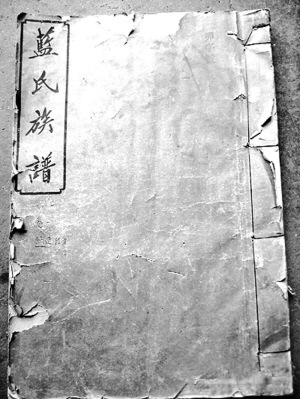 藍氏族譜